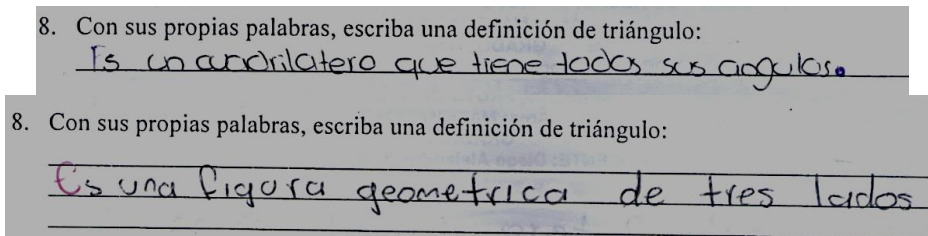 8. Con sus propias palabras, escriba una definición de triángulo:
Es un cuadrilatero que tiene todos sus angulos.
8. Con sus propias palabras, escriba una definición de triángulo:
Es una figura geometrica de tres lados